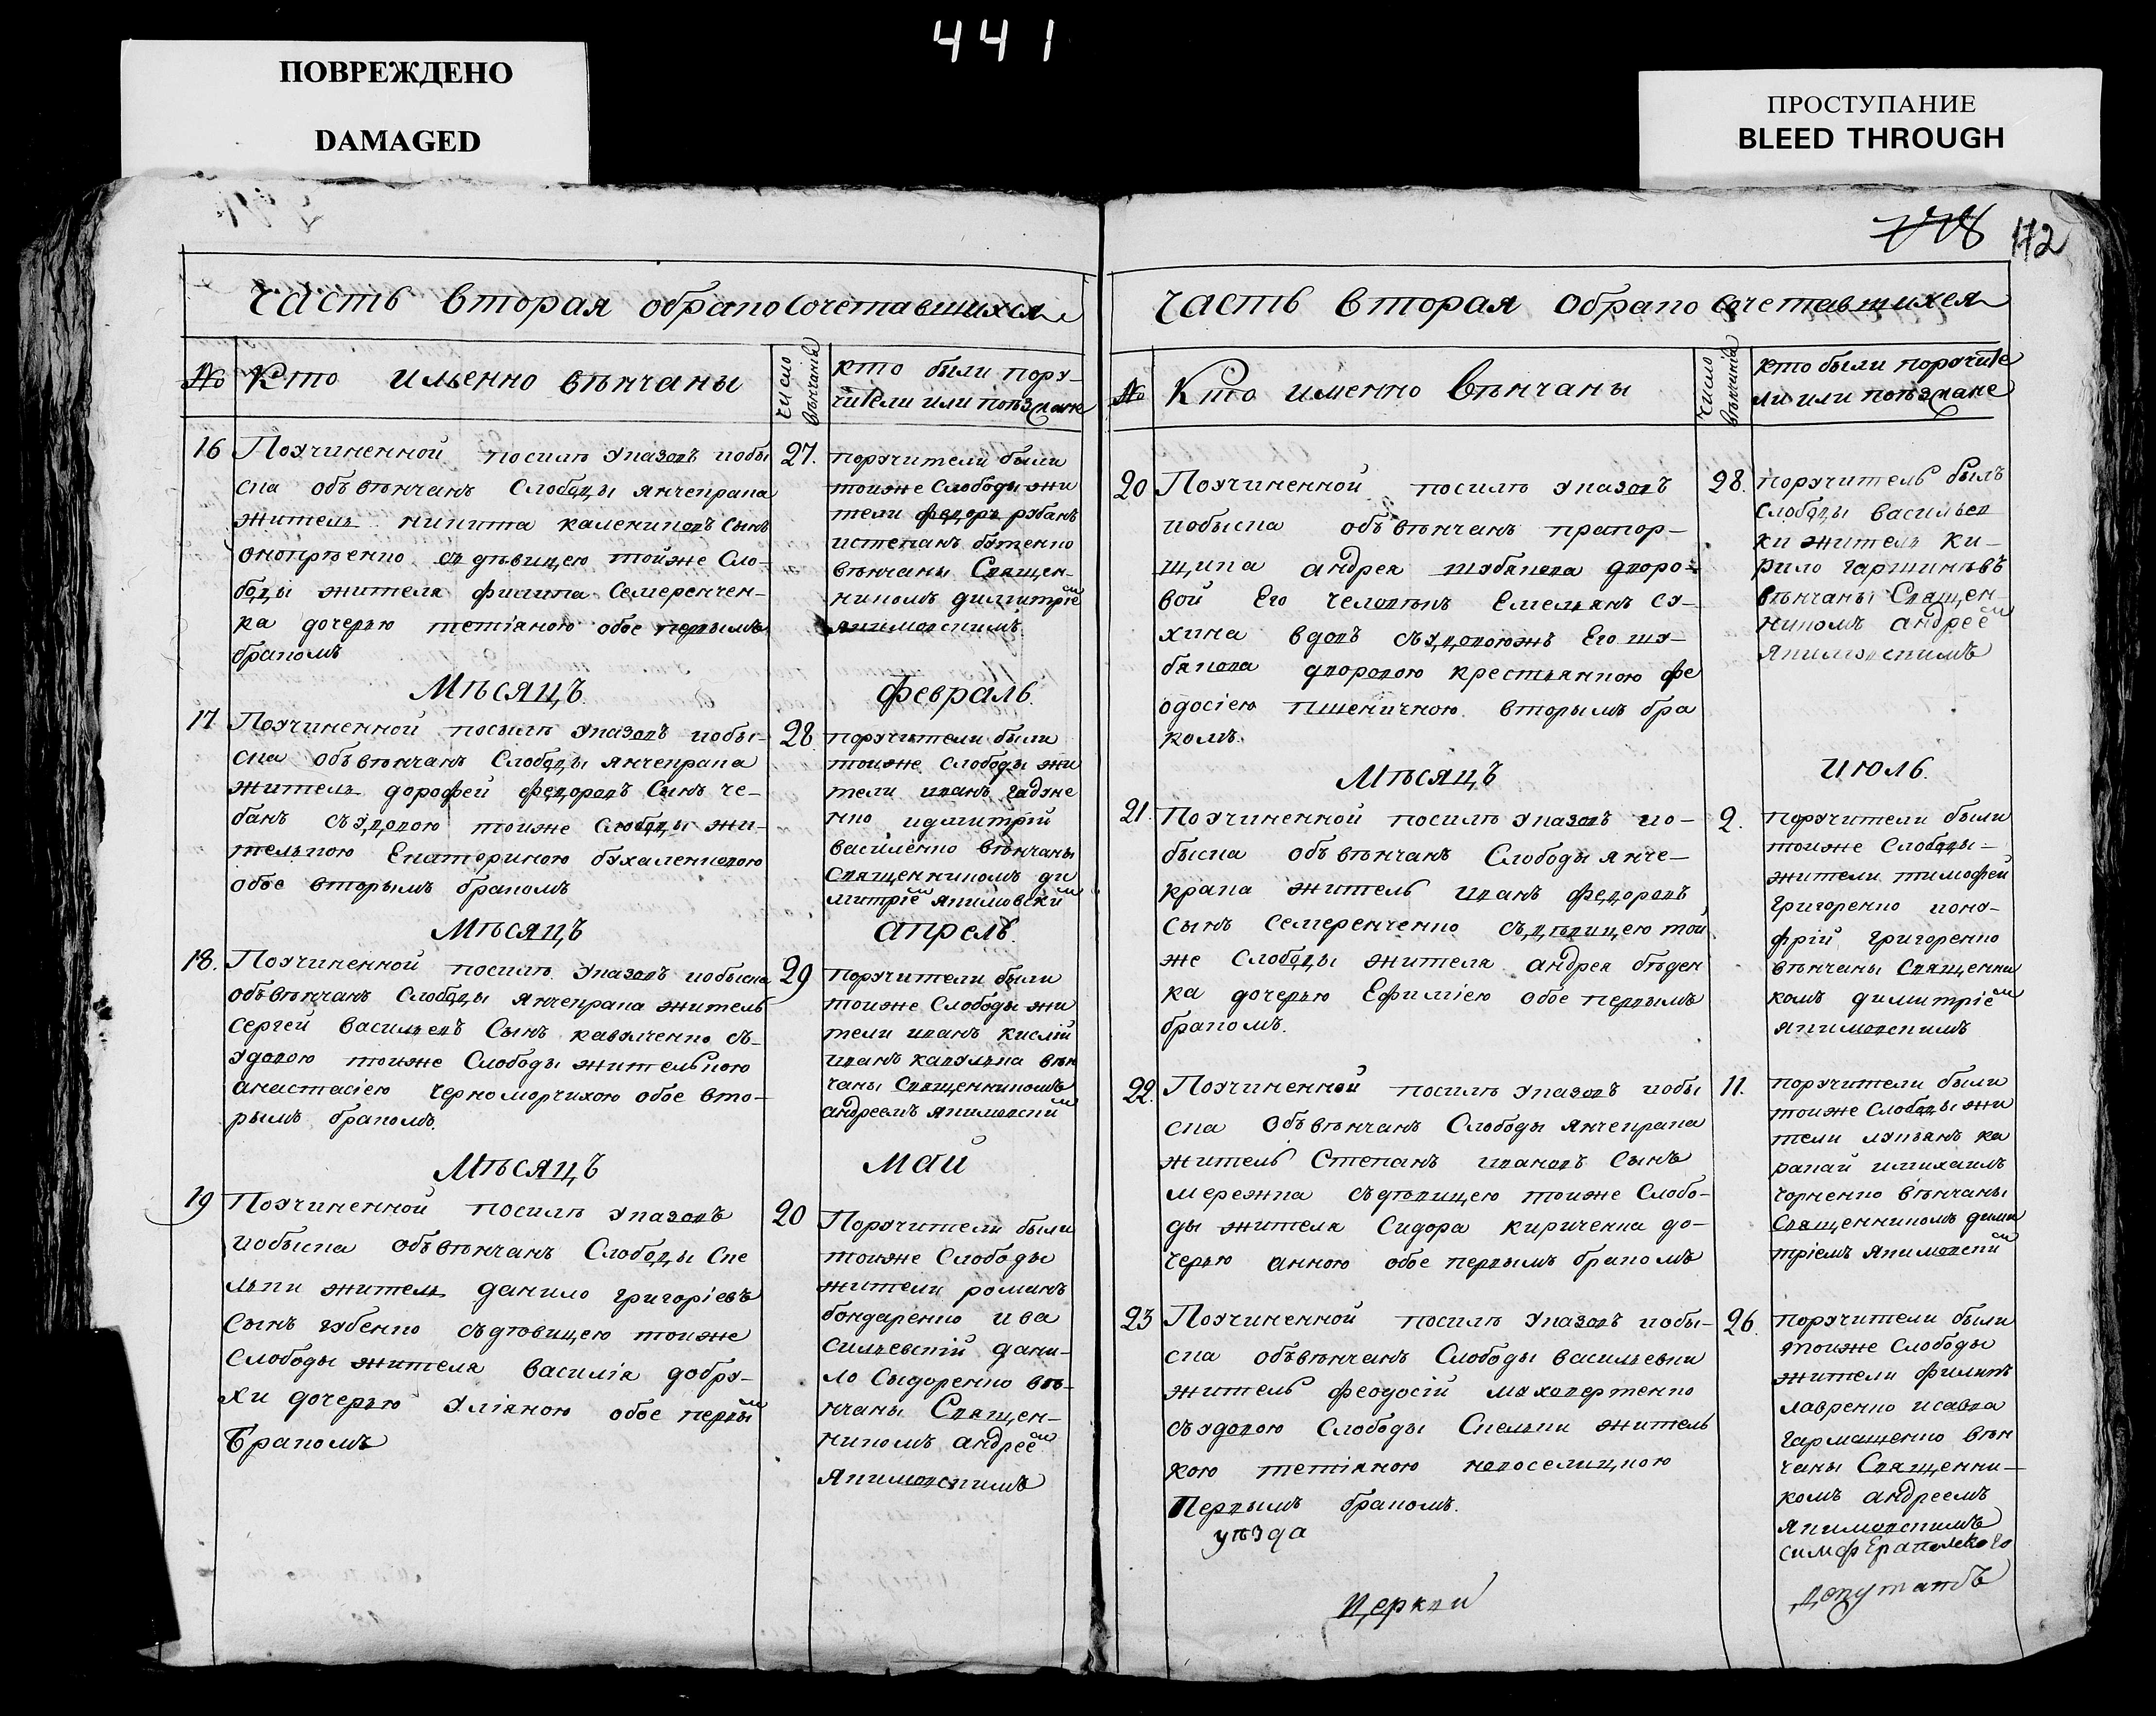 441
ПОВРЕЖДЕНО
DAMAGED
ПРОСТУПАНИЕ
BLEED THROUGH
Часть вторая обрако сочетавшихся
№ Кто именно вѣнчаны
число вѣнчанія
кто были пору-
чители или поѣзжане
16 Поучиненной посилѣ указовъ иобы
ска объвѣнчанъ Слободы янчекрака
житель никита калениковъ сынъ
онопрѣенко съ дѣвицею тойже Сло-
боды жителя филипа Семеренчен-
ка дочерью тетіаною обое первымъ
бракомъ
27.
поручители были
тоиже Слободы жи
тели федоръ рубанъ
истепанъ бутенко
вѣнчаны Священ-
никомъ димитріе м
якимовскимъ
Мѣсяцъ февраль.
17 Поучиненной посилѣ указовъ иобы-
ска объвѣнчанъ Слободы янчекрака
житель дорофей федоровъ Сынъ че-
банъ съудовою тоиже Слободы жи-
телькою Екатериною бухаленковою
обое вторымъ бракомъ
28
поручители были
тоиже Слободы жи
тели иванъ гадуне
нко идмитрій
василенко вѣнчаны
Священникомъ ди
митріе м якимовски м
Мѣсяцъ апрель.
18. Поучиненной посилѣ указовъ иобыска
объвѣнчанъ Слободы янчекрака житель
Сергей васильевъ Сынъ кавулченко съ-
удовою тоиже Слободы жителькою
анастасіею Черноморчихою обое вто-
рымъ бракомъ.
29
поручители были
тоиже Слободы жи
тели иванъ кислій
иванъ кавулька вѣн
чаны Священникомъ
андреемъ якимовски м
Мѣсяцъ май
19 Поучиненной посилѣ указовъ
иобыска объвѣнчанъ Слободы Ске
льки житель данило григоріевъ
Сынъ губенко съдѣвицею тоиже
Слободы жителя василія добру-
хи дочерью уліяною обое первы м
бракомъ
20
Поручители были
тоиже Слободы
жители романъ
бондаренко ива
сильевскій дани-
ло Сыдоренко вѣ-
нчаны Священ-
никомъ андрее м
якимовскимъ
112
Часть вторая обрако сочетавшихся
№ Кто именно вѣнчаны
число вѣнчанія
кто были поручите
ли или поѣзжане
20 Поучиненной посилѣ указовъ
иобыска объвѣнчанъ прапор-
щика андрея шубякова дворо-
вой Его человѣкъ Емельянъ су-
хина вдовъ съудовоюжъ Его шу-
бякова дворовою крестьянкою фе
одосіею пшеничною вторымъ бра
комъ.
28.
поручитель былъ
Слободы васильев
ки житель ки-
рило гаршинѣвъ
вѣнчаны Священ-
никомъ андрее м
якимовскимъ
Мѣсяцъ июль.
21. Поучиненной посилѣ указовъ ио-
быска объвѣнчанъ Слободы янче-
крака житель иванъ федоровъ
сынъ семеренченко съдѣвицею той
же Слободы жителя андрея бѣден
ка дочерью Ефиміею обое первымъ
бракомъ.
2.
поручители были
тоиже Слободы-
жители тимофей
григоренко иону-
фрій григоренко
вѣнчаны Священни
комъ димитріе м
якимовскимъ
22. Поучиненной посилѣ указовъ иобы
ска объвѣнчанъ Слободы янчекрака
житель Степанъ ивановъ сынъ
мережка съдѣвицею тоиже Слобо-
ды жителя Сидора кириченка до-
черью анною обое первымъ бракомъ
11.
поручители были
тоиже Слободы жи
тели лукъянъ ка
рапай имихаилъ
чорненко вѣнчаны
Священникомъ дими
тріемъ якимовски м
23 Поучиненной посилѣ указовъ иобы-
ска объвѣнчанъ Слободы васильевки
житель феодосій маховертенко
съудовою Слободы Скельки житель
кою тетіяною новоселицкою
Первымъ бракомъ.
26.
поручители были
тоиже Слободы
жители филипъ
лавренко исавва
гармашенко вѣн
чаны Священни-
комъ андреемъ
якимовскимъ
Симферапольского
уѣзда
Церкви
Депутатъ